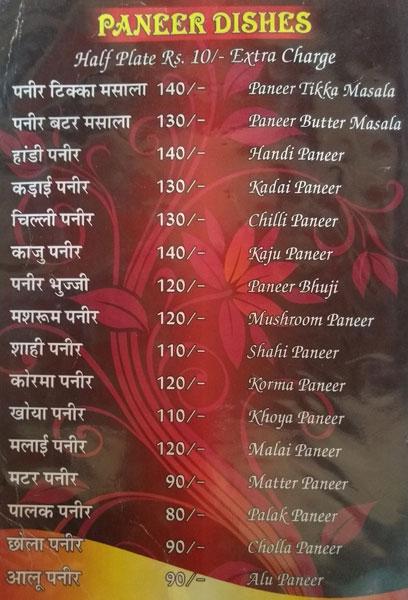 PANEER DISHES
Half Plate Rs. 10/- Extra Charge
पनीर टिक्का मसाला 140/- Paneer Tikka Masala
पनीर बटर मसाला 130/- Paneer Butter Masala
हांडी पनीर 140/- Handi Paneer
कड़ाई पनीर 130/- Kadai Paneer
चिल्ली पनीर 130/- Chilli Paneer
काजु पनीर 140/- Kaju Paneer
पनीर भुज्जी 120/- Paneer Bhuji
मशरूम पनीर 120/- Mushroom Paneer
शाही पनीर 110/- Shahi Paneer
कोरमा पनीर 120/- Korma Paneer
खोया पनीर 110/- Khoya Paneer
मलाई पनीर 120/- Malai Paneer
मटर पनीर 90/- Matter Paneer
पालक पनीर 80/- Palak Paneer
छोला पनीर 90/- Cholla Paneer
आलू पनीर 90/- Alu Paneer